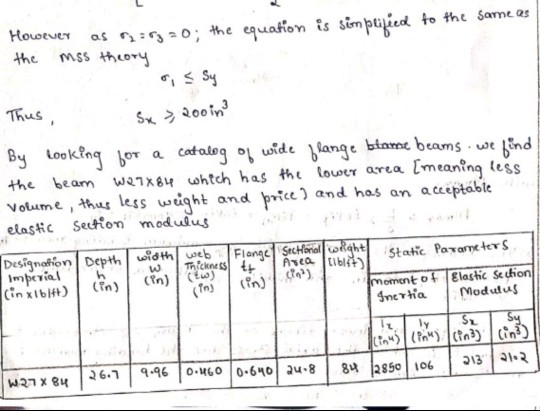 However as σ2 = σ3 = 0; the equation is simplified to the same as
the MSS theory
σ1 ≤ Sy
Thus,
Sx ≥ 200in³
By looking for a catalog of wide flange beams. we find
the beam W27X84 which has the lower area [meaning less
volume, thus less weight and price) and has an acceptable
elastic section modulus
Designation Imperial (in x lb/ft) | Depth h (in) | width W (in) | web Thickness (tw) (in) | Flange tf (in) | Sectional Area (in²) | weight (lb/ft) | Static Parameters
moment of Inertia | Elastic Section Modulus
Ix (in⁴) | Iy (in⁴) | Sx (in³) | Sy (in³)
W27 X 84 | 26.7 | 9.96 | 0.460 | 0.640 | 24.8 | 84 | 2850 | 106 | 213 | 21.2